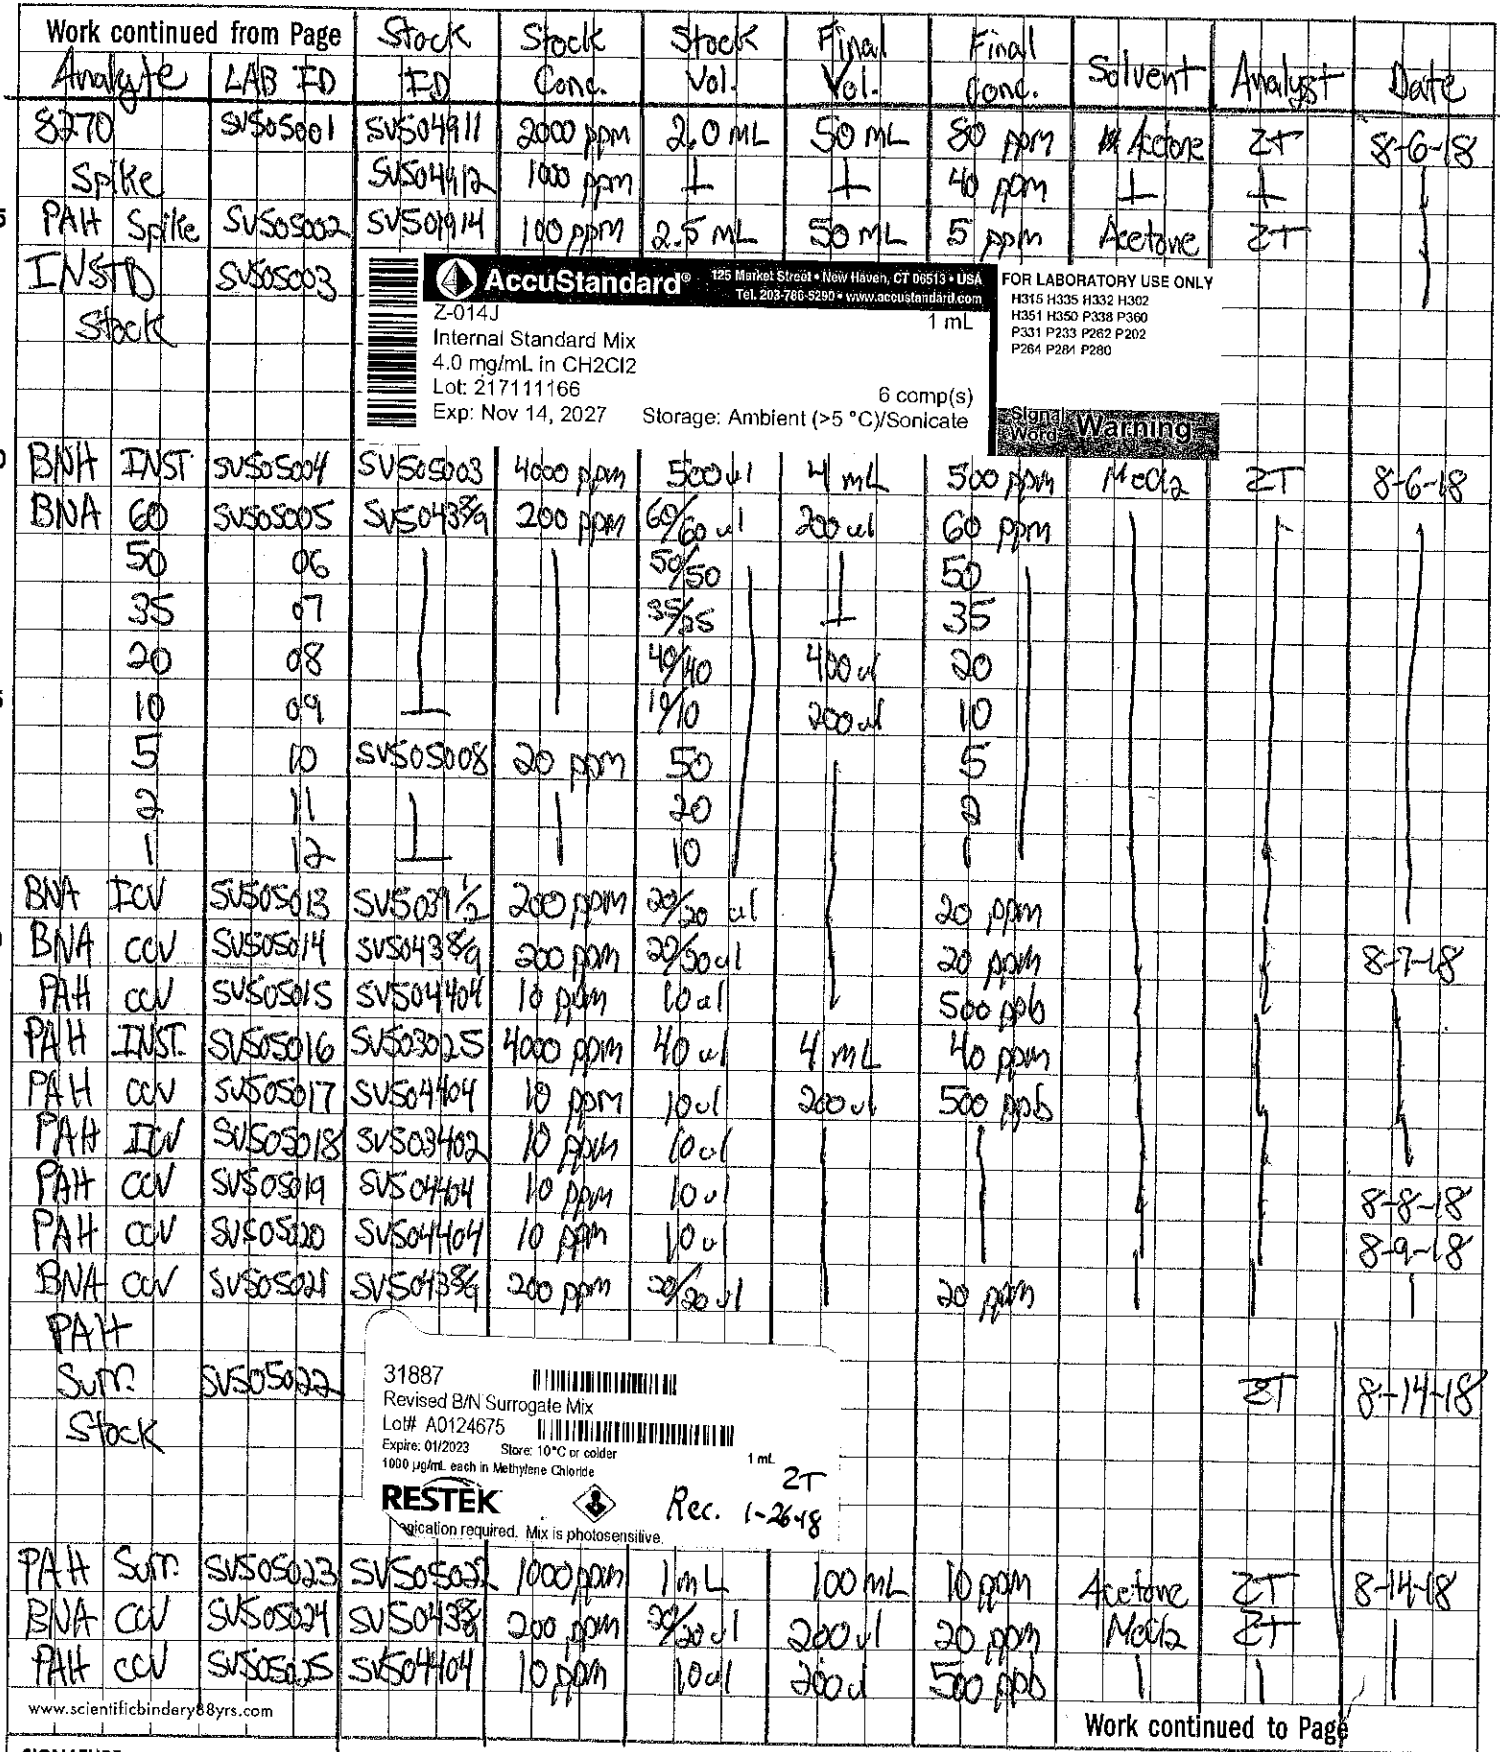 Work continued from Page Stock Stock Stock Final Final
Analyte LAB ID ID Conc. Vol. Vol. Conc. Solvent Analyst Date
8270 SVS05001 SVS04911 2000 ppm 2.0 mL 50 mL 80 ppm Acetone ZT 8-6-18
Spike SVS04912 1000 ppm 40 ppm
PAH Spike SVS05002 SVS01914 100 ppm 2.5 mL 50 mL 5 ppm Acetone ZT
INSTD SVS05003
Stock
AccuStandard® 125 Market Street • New Haven, CT 06513 • USA
Tel. 203-786-5290 • www.accustandard.com
Z-014J 1 mL
Internal Standard Mix
4.0 mg/mL in CH2Cl2
Lot: 217111166 6 comp(s)
Exp: Nov 14, 2027 Storage: Ambient (>5 °C)/Sonicate
FOR LABORATORY USE ONLY
H315 H335 H332 H302
H351 H350 P338 P360
P331 P233 P262 P202
P264 P281 P280
Signal Word Warning
BNA INST SVS05004 SVS05003 4000 ppm 500ul 4 mL 500 ppm MeCl2 ZT 8-6-18
BNA 60 SVS05005 SVS0438/9 200 ppm 60/60 ul 200 ul 60 ppm
50 06 50/50 50
35 07 35/35 35
20 08 40/40 400 ul 20
10 09 10/10 200 ul 10
5 10 SVS05008 20 ppm 50 5
2 11 20 2
1 12 10 1
BNA ICV SVS05013 SVS0391/2 200 ppm 20/20 ul 20 ppm
BNA CCV SVS05014 SVS0438/9 200 ppm 20/20ul 20 ppm 8-7-18
PAH CCV SVS05015 SVS04404 10 ppm 10ul 500 ppb
PAH INST. SVS05016 SVS03025 4000 ppm 40 ul 4 mL 40 ppm
PAH CCV SVS05017 SVS04404 10 ppm 10ul 200ul 500 ppb
PAH ICV SVS05018 SVS03402 10 ppm 10ul
PAH CCV SVS05019 SVS04404 10 ppm 10ul 8-8-18
PAH CCV SVS05020 SVS04404 10 ppm 10ul 8-9-18
BNA CCV SVS05021 SVS0438/9 200 ppm 20/20 ul 20 ppm
PAH
Surr. SVS05022 ZT 8-14-18
Stock
31887
Revised B/N Surrogate Mix
Lot# A0124675
Expire: 01/2023 Store: 10°C or colder
1000 µg/mL each in Methylene Chloride 1 mL
ZT
RESTEK Rec. 1-26-18
required. Mix is photosensitive.
PAH Surr. SVS05023 SVS05022 1000ppm 1mL 100 mL 10 ppm Acetone ZT 8-14-18
BNA CCV SVS05024 SVS0438/9 200 ppm 20/20 ul 200ul 20 ppm MeCl2 ZT
PAH CCV SVS05025 SVS04404 10 ppm 10ul 200ul 500 ppb
www.scientificbindery88yrs.com
Work continued to Page